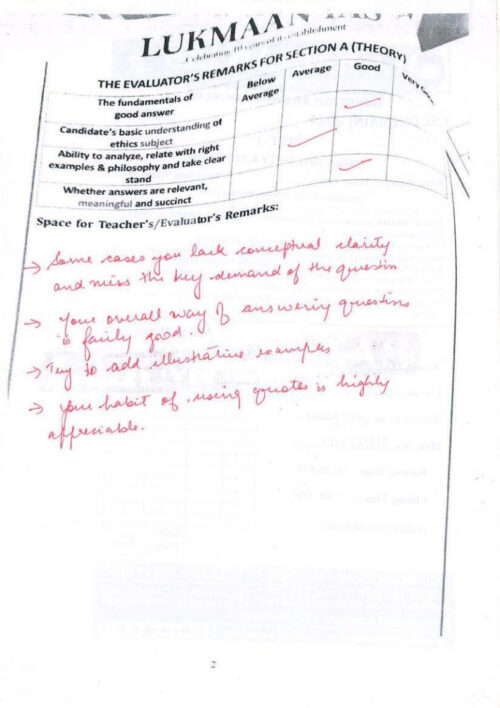 LUKMAAN IAS
Celebrating 10 years of its establishment
THE EVALUATOR'S REMARKS FOR SECTION A (THEORY)
Below Average
Average
Good
Very Good
The fundamentals of
good answer
Candidate's basic understanding of
ethics subject
Ability to analyze, relate with right
examples & philosophy and take clear
stand
Whether answers are relevant,
meaningful and succinct
Space for Teacher's/Evaluator's Remarks:
→ Some cases you lack conceptual clarity
and miss the key demand of the question
→ Your overall way of answering questions
is fairly good.
→ Try to add illustrative examples
→ your habit of using quotes is highly
appreciable.
2